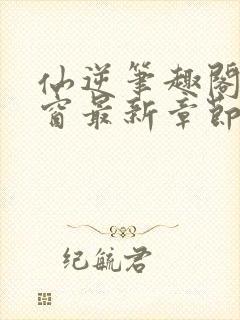 仙逆笔趣阁
窗最新章節
纪毓君